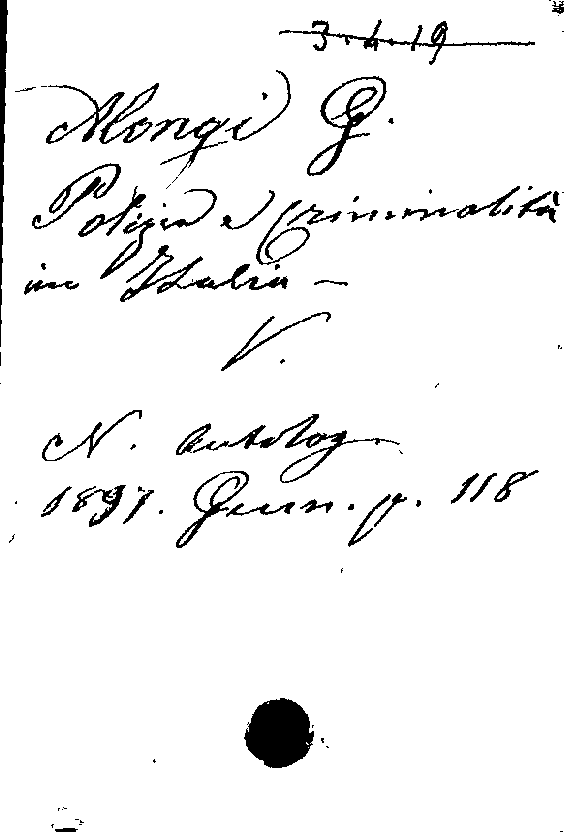 3.4.19
Alongi G.
Polizia e Criminalità
in Italia –
V.
N. Antolog.
1897. Genn. p. 118